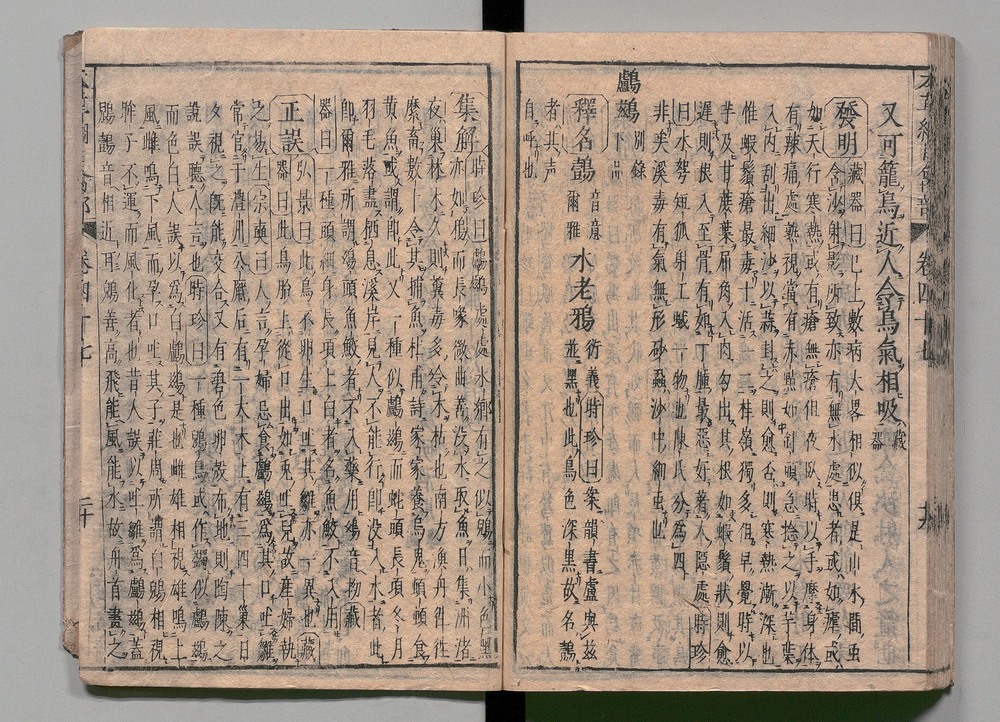 又可籠鳥近人令鳥氣相吸 藏器
發明 藏器曰已上數病大畧相似俱是山水間虫
含沙射影所致亦有無水處患者或如瘧或
如天行寒熱或有瘡無瘡但夜臥時以手摩身体
有辣痛處熟視當有赤點如針頭急捻之以芋葉
入内刮出細沙以蒜封之則愈否則寒熱漸深也
惟蝦鬚瘡最毒十活一二桂嶺獨多但早覺時以
芋及甘蔗葉屑角入肉勾出其根如蝦鬚狀則愈
遲則根入至骨有如丁腫最惡好著人隱處時珍
曰水弩短狐射工蜮一物也陳氏分為四
非矣溪毒有氣無形砂蝨沙中細虫也
鸕鷀 別錄下品
釋名鷧 音意爾雅 水老鴉 衍義時珍曰案韻書盧與茲
並黑也此鳥色深黑故名鷧
者其声
自呼也
集解 時珍曰鸕鷀處處水鄉有之似鶂而小色黑
亦如鴉而長喙微曲善沒水取魚日集洲渚
夜巢林木久則糞毒多令木枯也南方漁舟往往
縻畜數十令其捕魚杜甫詩家家養烏鬼頓頓食
黃魚或謂即此又一種似鸕鷀而蛇頭長項冬月
羽毛落盡栖息溪岸見人不能行即没入水者此
即爾雅所謂鴢頭魚鮫者不入藥用鴢音拗藏
器曰一種頭細身長項上白者名魚鮫不入用
正誤 弘景曰此鳥不卵生口吐其雛亦一異也藏
器曰此鳥胎上從口出如兎吐兒故産婦執
之易生宗奭曰人言孕婦忌食鸕鷀為其口吐雛
常官于澧州公廨后有一大木上有三四十巢日
夕視之旣能交合又有碧色卵殻布地則陶陳之
說誤聽人言也時珍曰一種鶂鳥或作鷁似鸕鷀
而色白人誤以為白鸕鷀是也雌雄相視雄鳴上
風雌鳴下風而孕口吐其子莊周所謂白鶂相視
眸子不運而風化者也昔人誤以吐雛為鸕鷀蓋
鸕鶂音相近耳鶂善高飛能風能水故舟首畫之
卷四十七